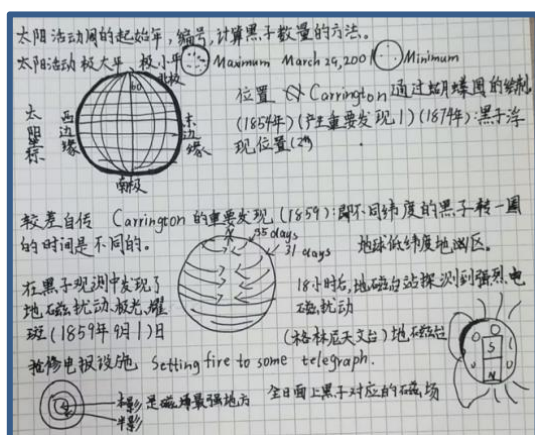 太阳活动周的起始年，编号，计算黑子数量的方法。
太阳活动 极大平 极小平 Maximum March 29, 2001 Minimum
北极
60
太阳坐标
西边缘
东边缘
南极
位置 Carrington 通过蝴蝶图的绘制
(1854年)(产生重要发现1)(1874年):黑子浮
现位置
较差自传 Carrington的重要发现(1859):即不同纬度的黑子转一圈
的时间是不同的。
N
35 days
31 days
地球低纬度地区。
在黑子观测中发现了
地磁扰动、极光、耀
斑(1859年9月1)日
18小时后,地磁台站探测到强烈电
磁扰动
(格林尼天文台)地磁台
抢修电报设施 Setting fire to some telegraph.
S
N
本影
半影
是磁场最强地方
全日面上黑子对应的磁场